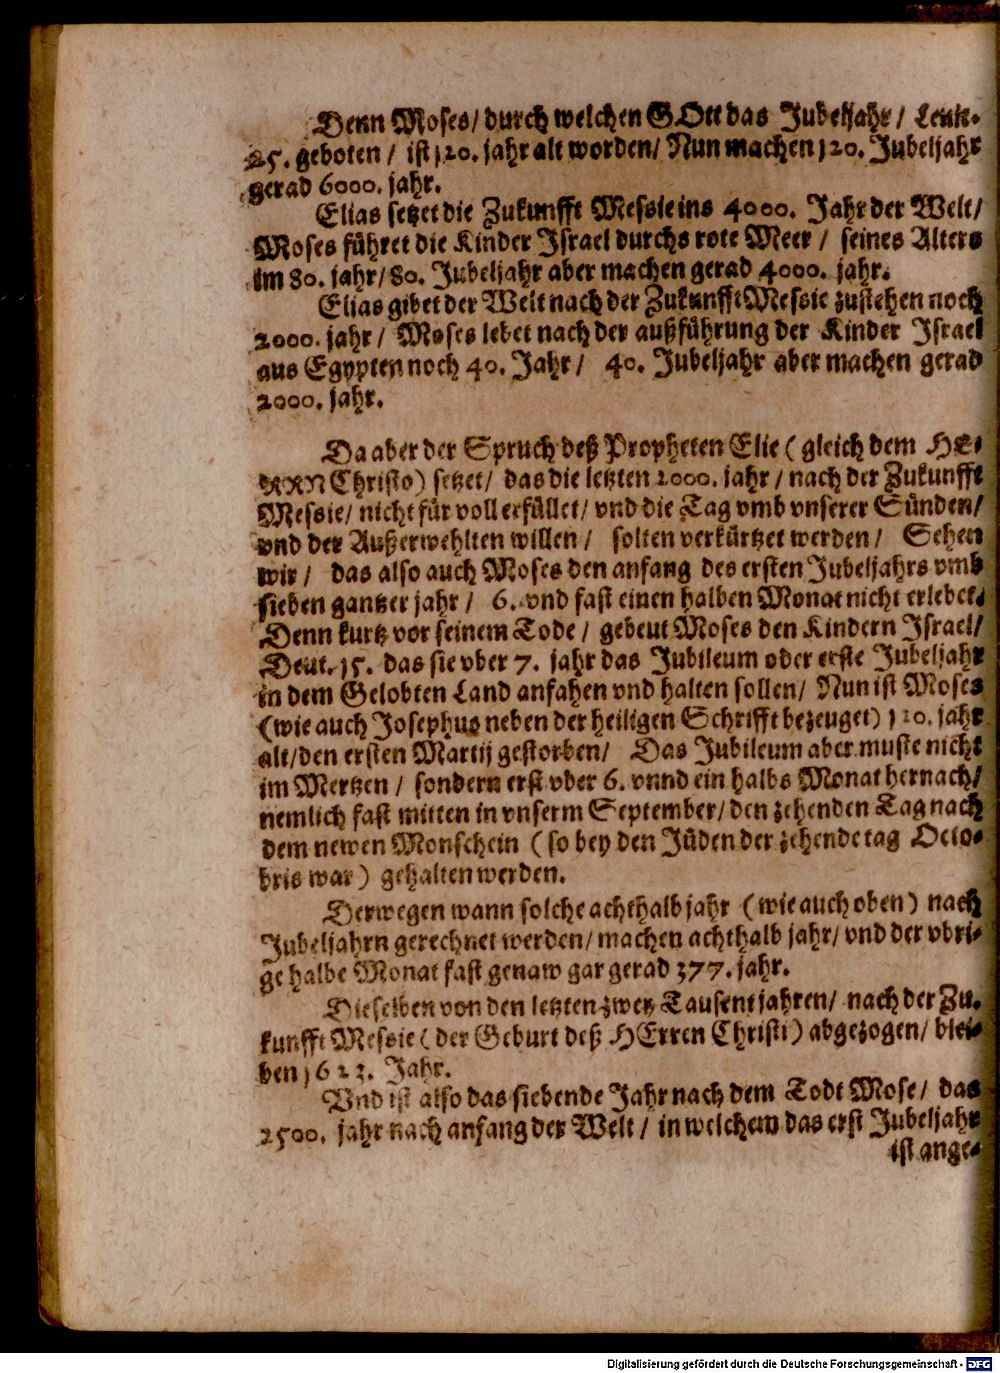 Denn Moses/ durch welchen GOtt das Jubeljahr / Levit.
25. geboten / ist 120. jahr alt worden/ Nun machen 120. Jubeljahr
gerad 6000. jahr.
Elias setzet die Zukunfft Messie ins 4000. Jahr der Welt/
Moses führet die Kinder Israel durchs rote Meer / seines Alters
im 80. jahr/ 80. Jubeljahr aber machen gerad 4000. jahr.
Elias gibet der Welt nach der Zukunfft Messie zustehen noch
2000. jahr / Moses lebet nach der außführung der Kinder Israel
aus Egypten noch 40. Jahr / 40. Jubeljahr aber machen gerad
2000. jahr.
Da aber der Spruch deß Propheten Elie ( gleich dem HE-
RRN Christo) setzet/ das die letzten 2000. jahr / nach der Zukunfft
Messie/ nicht für voll erfüllet/ vnd die Tag vmb vnserer Sünden/
vnd der Außerwehlten willen / solten verkürtzet werden / Sehen
wir / das also auch Moses den anfang des ersten Jubeljahrs vmb
sieben gantzer jahr / 6. vnd fast einen halben Monat nicht erlebet.
Denn kurtz vor seinem Tode / gebeut Moses den Kindern Israel/
Deut. 15. das sie vber 7. jahr das Jubileum oder erste Jubeljahr
in dem Gelobten Land anfahen vnd halten sollen/ Nun ist Moses
(wie auch Josephus neben der heiligen Schrifft bezeuget) 120. jahr
alt/ den ersten Martij gestorben/ Das Jubileum aber muste nicht
im Mertzen / sondern erst vber 6. vnnd ein halbs Monat hernach/
nemlich fast mitten in vnserm September/ den zehenden Tag nach
dem newen Monschein ( so bey den Jüden der zehende tag Octo-
bris war ) gehalten werden.
Derwegen wann solche achthalb jahr ( wie auch oben ) nach
Jubeljahrn gerechnet werden/ machen achthalb jahr/ vnd der vbri-
ge halbe Monat fast genaw gar gerad 377. jahr.
Dieselben von den letzten zwey Tausent jahren/ nach der Zu-
kunfft Messie ( der Geburt deß HErren Christi ) abgezogen/ blei-
ben 1623. Jahr.
Vnd ist also das siebende Jahr nach dem Todt Mose / das
2500. jahr nach anfang der Welt / in welchem das erst Jubeljahr
ist ange-
Digitalisierung gefördert durch die Deutsche Forschungsgemeinschaft - DFG